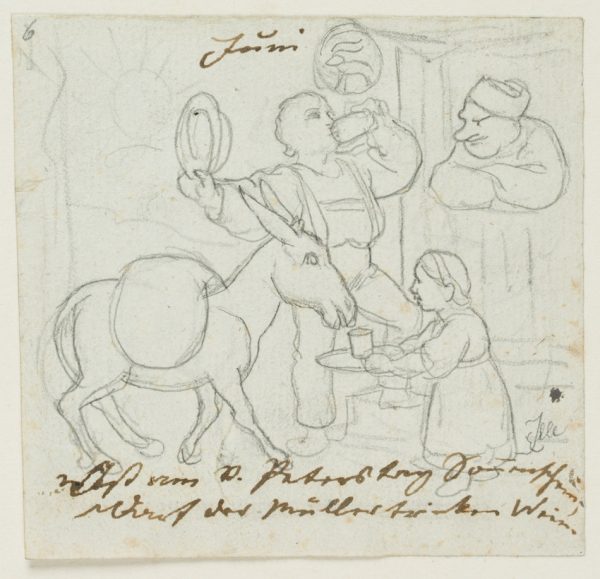 6
Juni
Ist am S. Peterstag Sonnenschein
Darf der Müller trinken Wein.
Ille